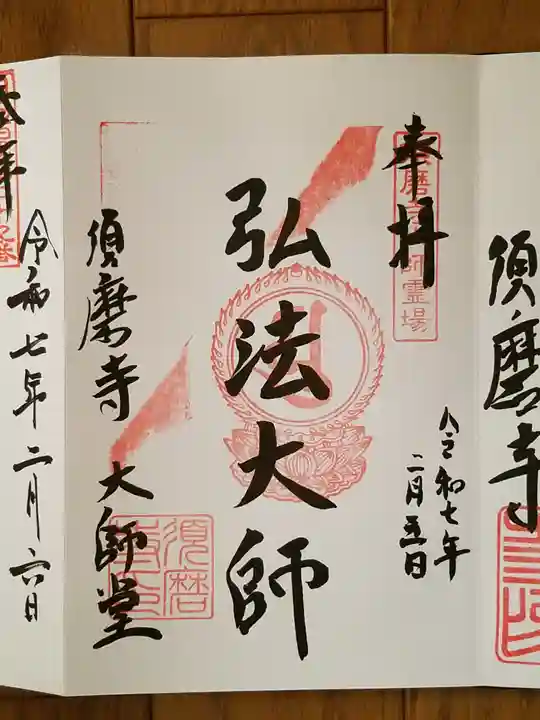 須磨寺
奉拝
須磨寺大師霊場
令和七年
二月五日
弘法大師
須磨寺 大師堂
須磨
令和七年二月六日
奉拝